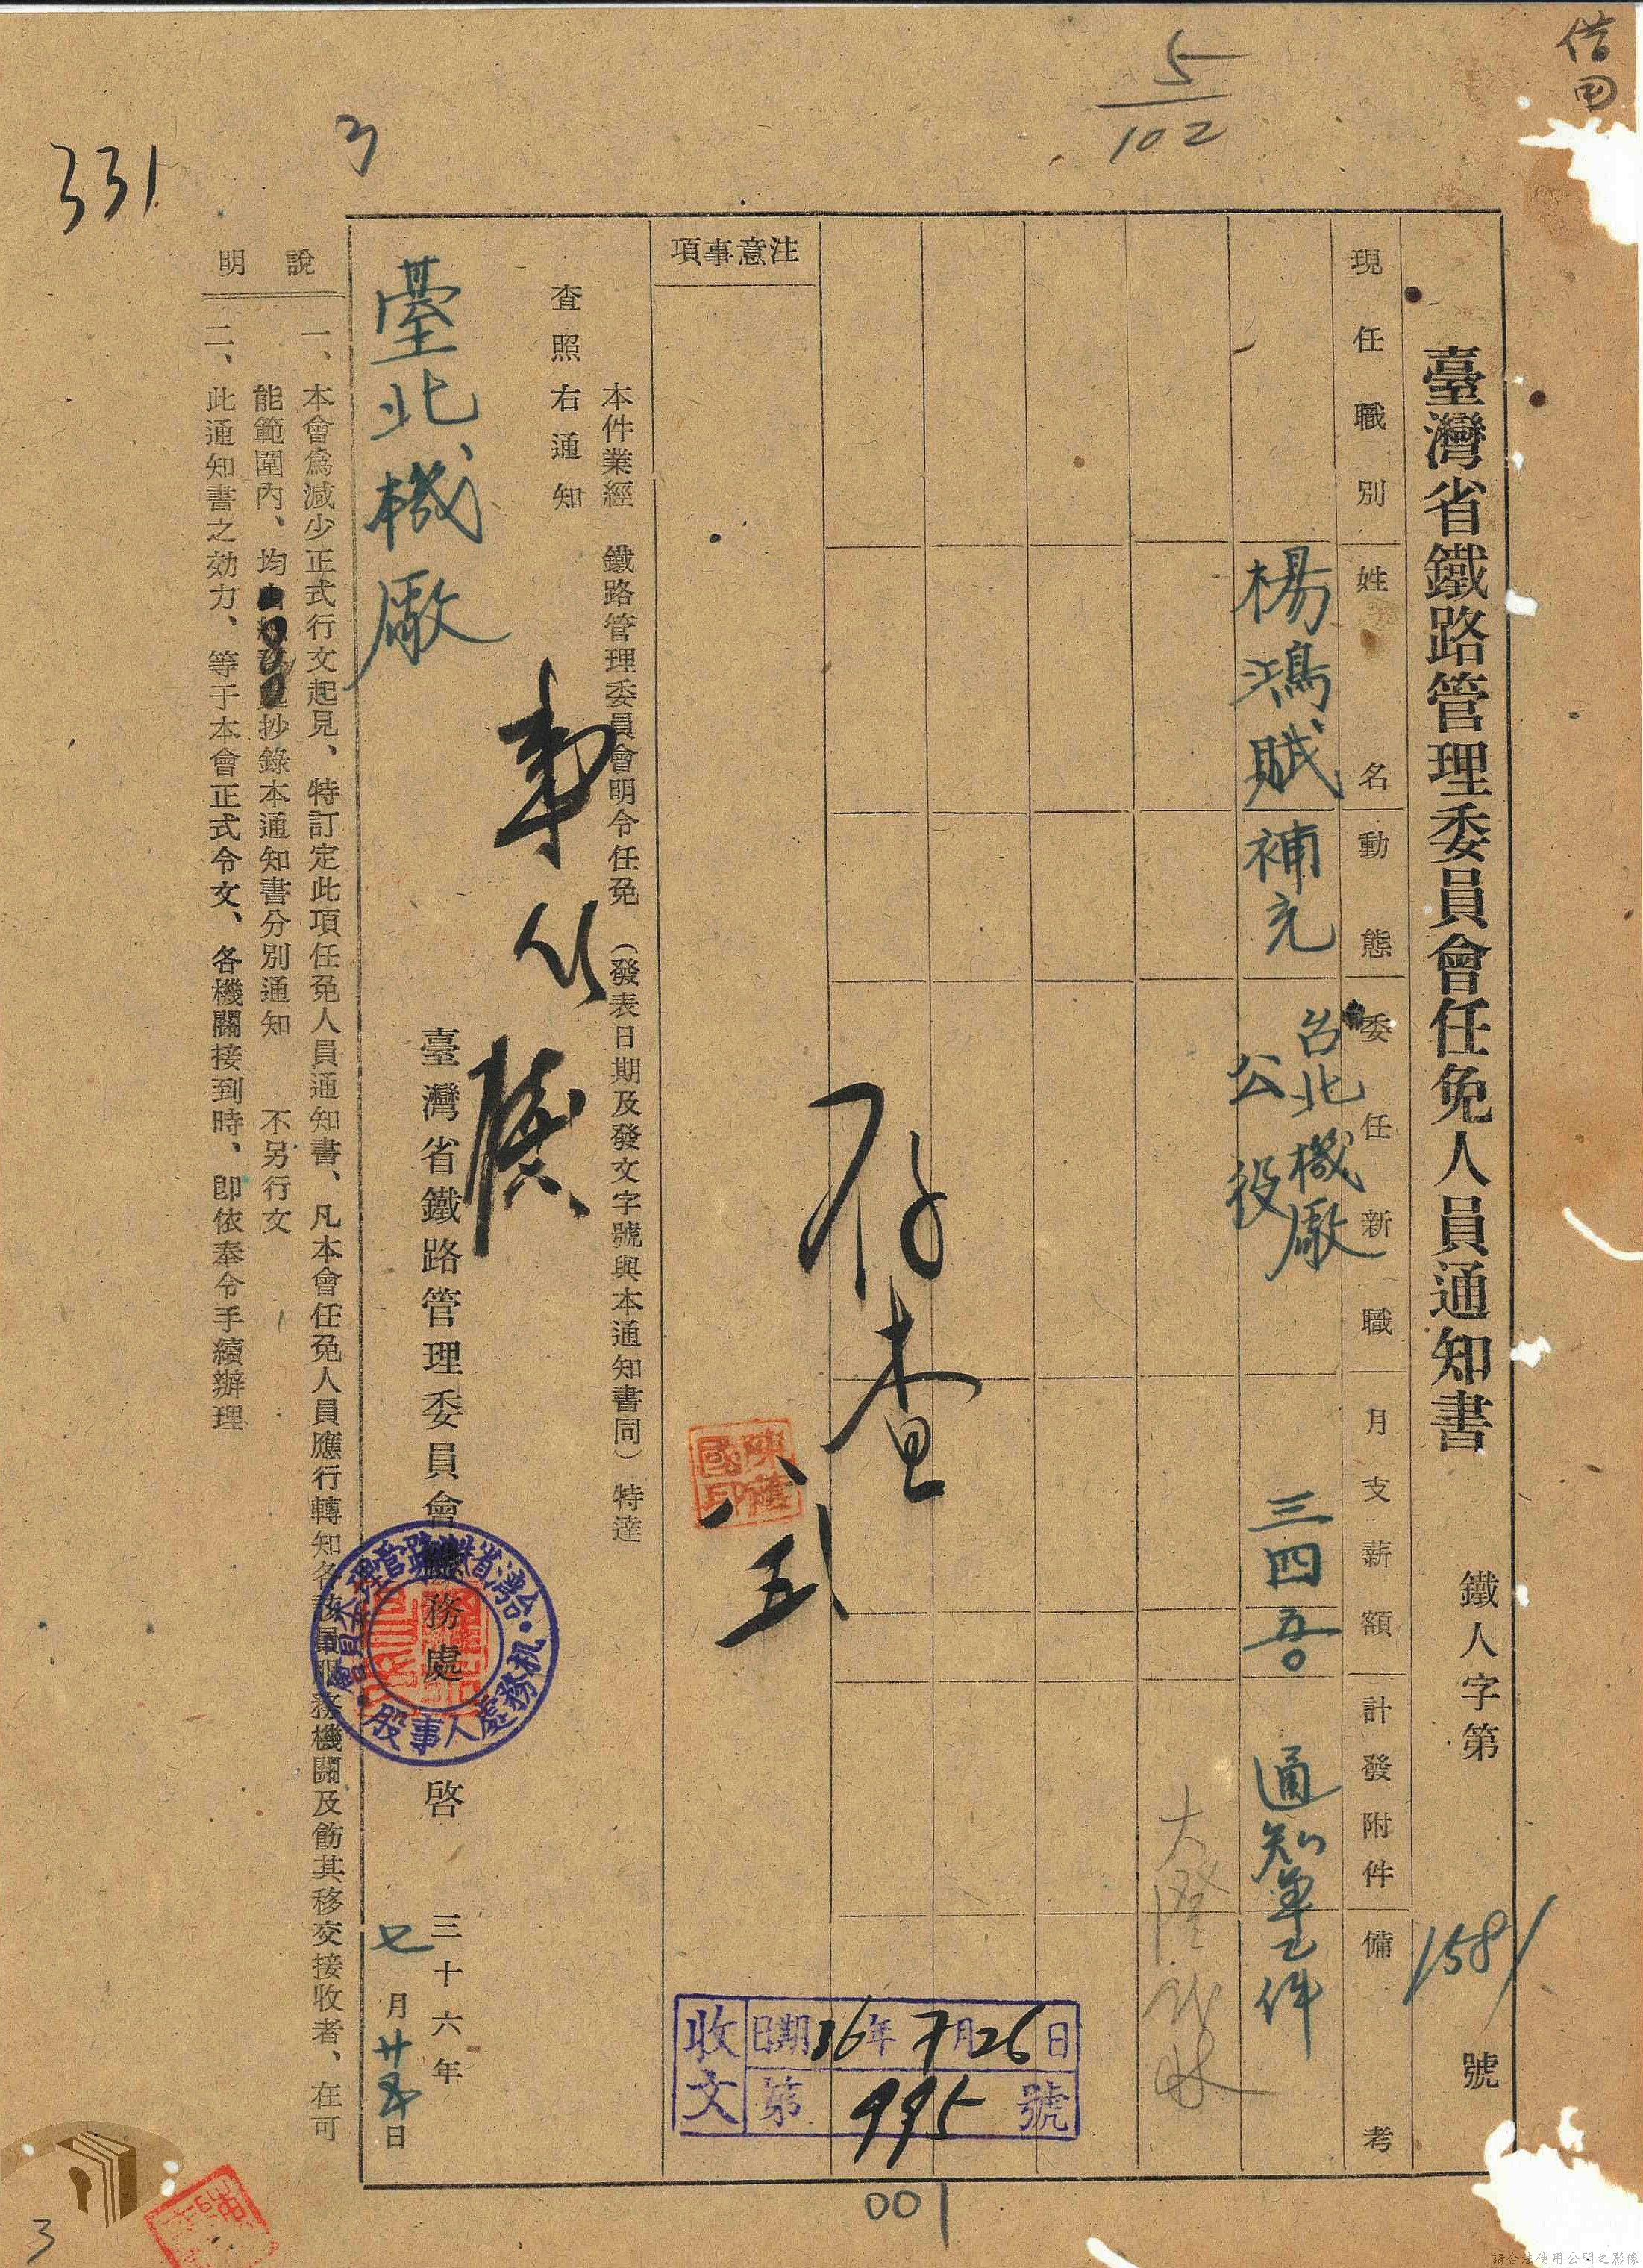 借用
5
102
3
331
臺灣省鐵路管理委員會任免人員通知書 鐵人字第1581號
現任職別 姓名 動態 委任新職 月支薪額 計發附件 備考
楊鴻賊 補充 台北機廠 公役 三四五〇 通知單乙件
注意事項
存查
八 五
陳蔭國印
本件業經 鐵路管理委員會明令任免 (發表日期及發文字號與本通知書同) 特達
查照右通知
臺北機廠
臺灣省鐵路管理委員會 務處 啓 三十六年
七月廿五日
台灣省鐵路管理委員會
机務處人事股
收文 日期36年7月26日
第995號
說明
一、本會爲減少正式行文起見、特訂定此項任免人員通知書、凡本會任免人員應行轉知各該員服務機關及飭其移交接收者、在可
能範圍內、均 抄錄本通知書分別通知 不另行文
二、此通知書之効力、等于本會正式令文、各機關接到時、卽依奉令手續辦理
001
3
請合法使用公開之影像